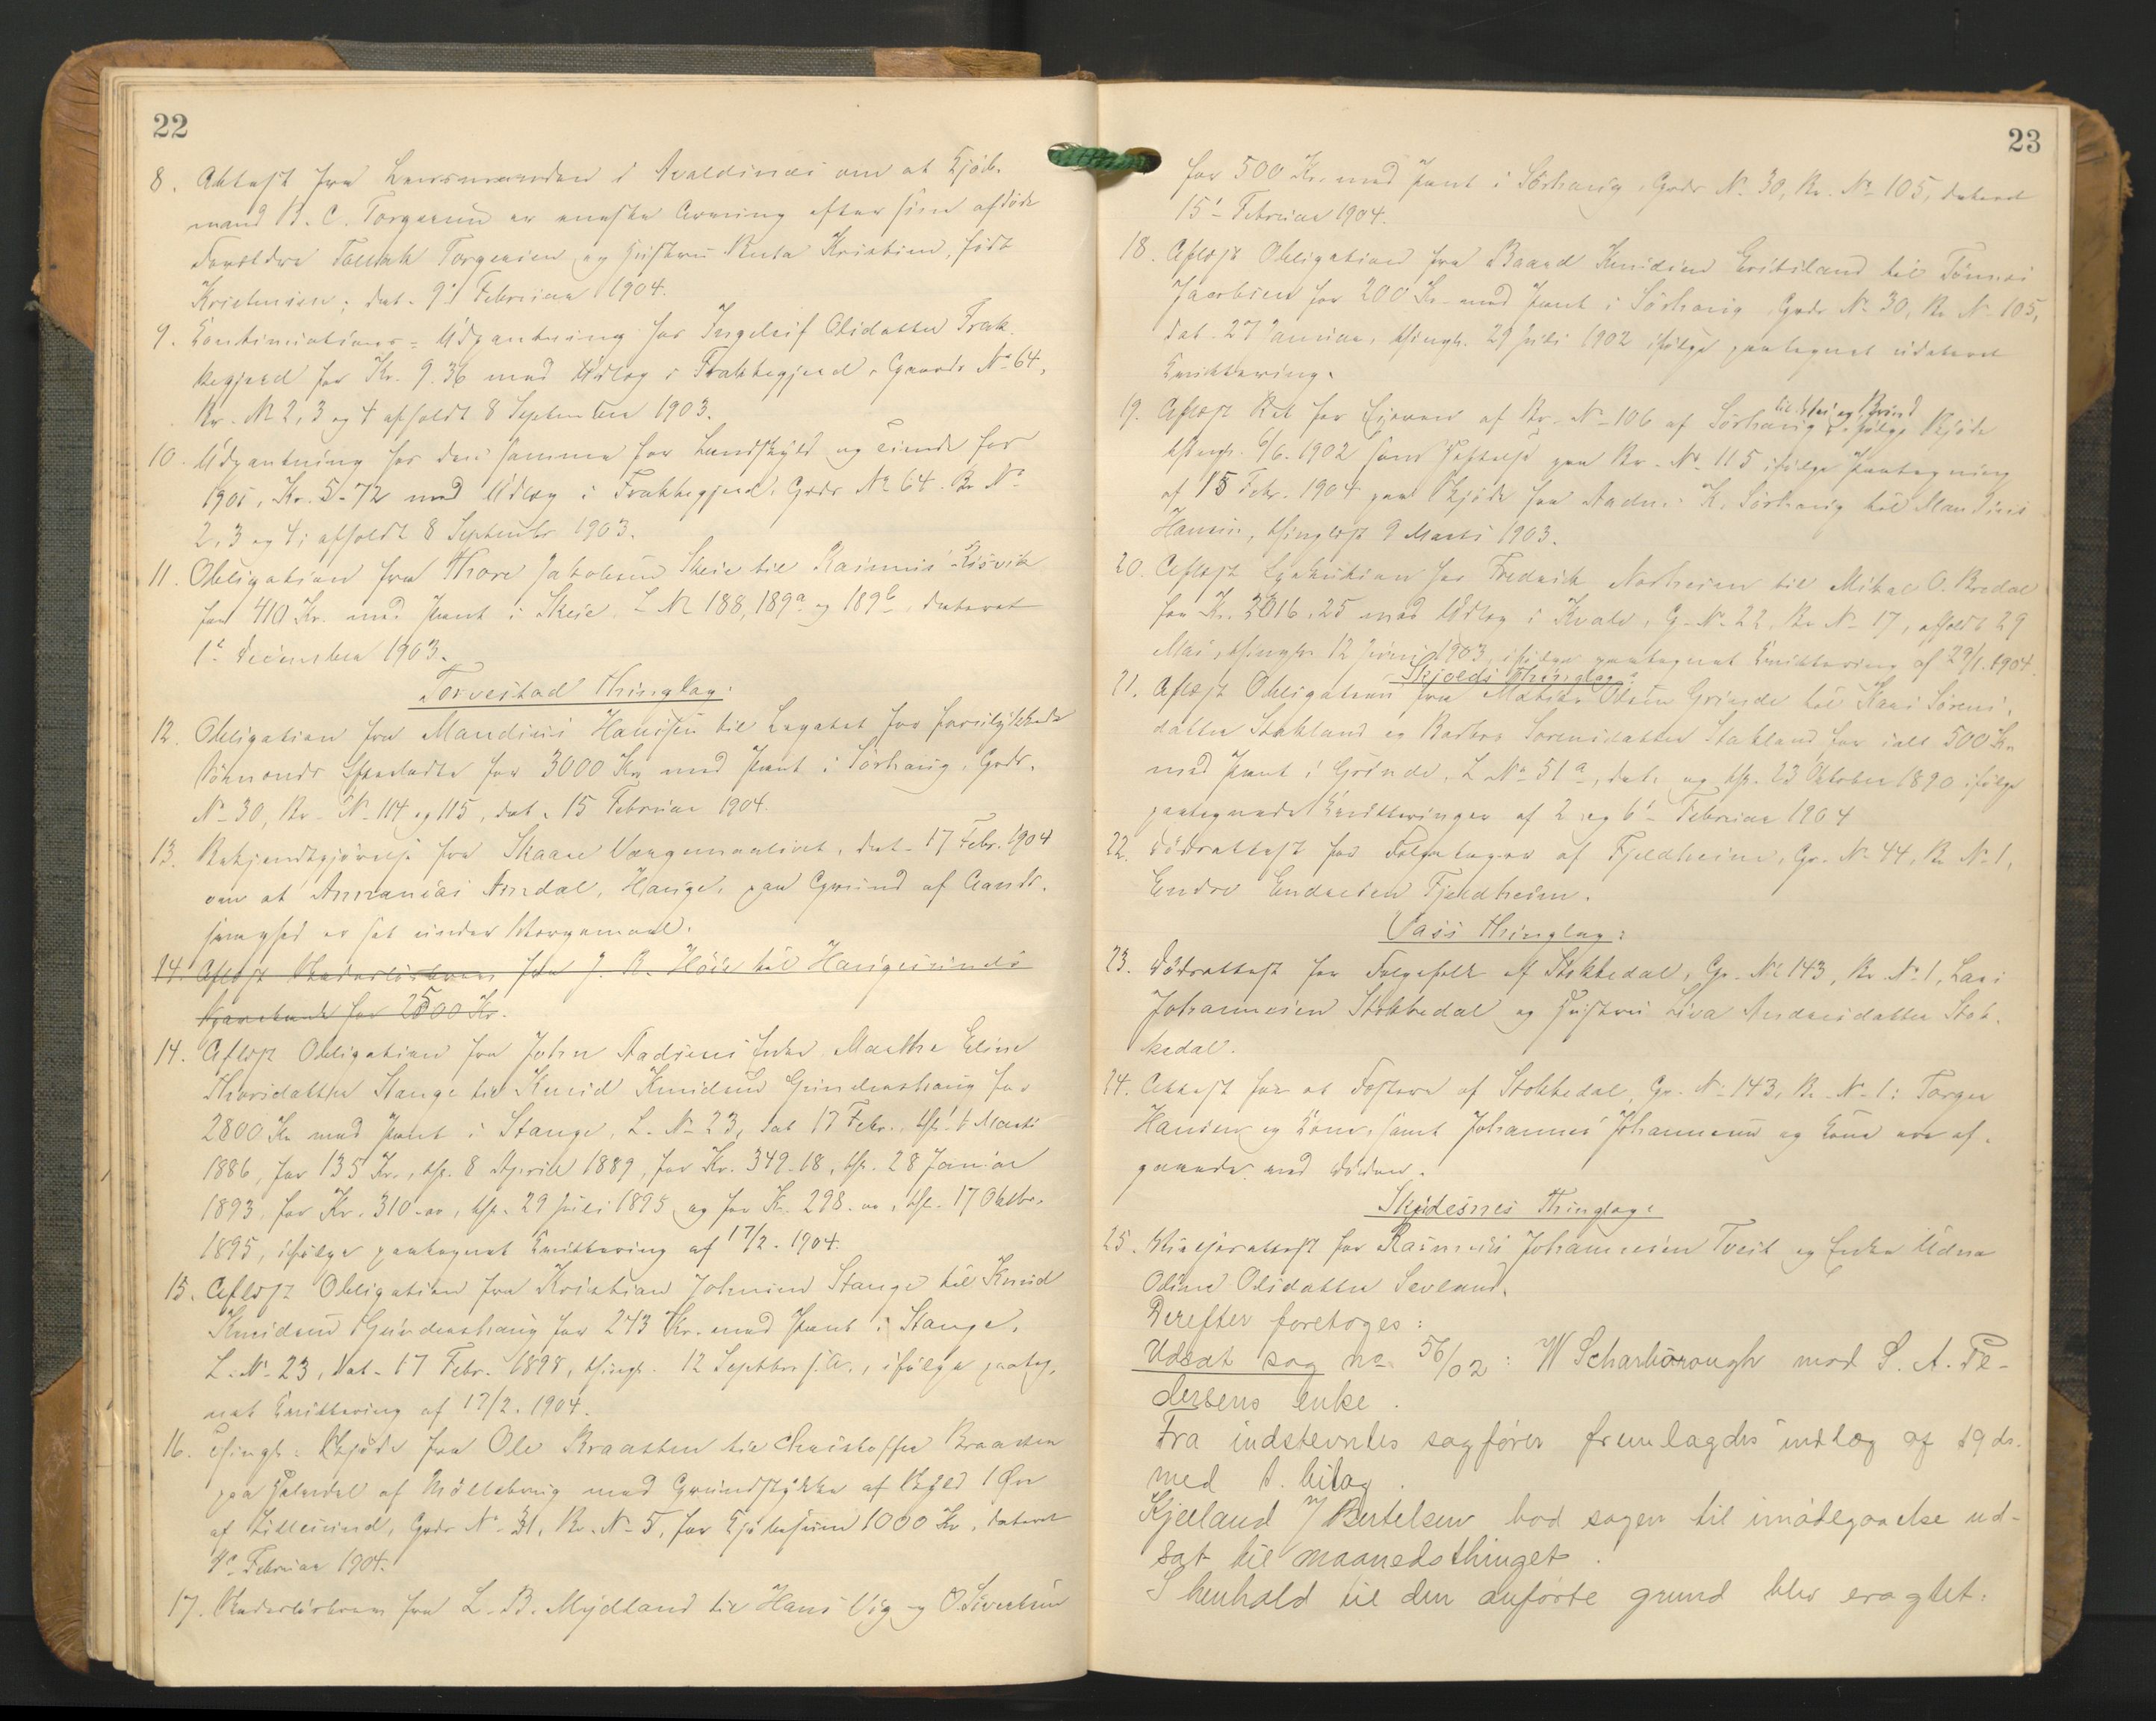 22
8. Attest fra Lensmanden i Avaldsnes om at Kjöb-
mand B. C. Torgersen er eneste Arving efter sine afdöde
Forældre Tollak Torgersen og Hustru Berta Kristine, födt
Kristensen; dat. 9de Februar 1904.
9. Kontinuations-Udpantning hos Ingeleif Olsdatter Frak-
kegjerd for Kr. 9.36 med Udlæg i Frakkegjerd, Gaards No 64,
Br. No 2, 3 og 4 afholdt 8 September 1903.
10. Udpantning hos den samme for Landskyld og Tiende for
1901, Kr. 5-72 med Udlæg i Frakkegjerd, Grds No 64. Br No
2, 3 og 4; afholdt 8 Septembr 1903.
11. Obligation fra Thore Jakobsen Skeie til Rasmus Risvik
for 410 Kr. med Pant i Skeie, L No 188, 189a og 189b, dateret
1ste December 1903.
Torvestad Thinglag:
12. Obligation fra Mandius Hansen til Legatet for forulykkede
Sömænds Efterladte for 3000 Kr. med Pant i Sörhaug, Grds.
No 30, Br. No 114 og 115, dat. 15 Februar 1904.
13. Bekjendtgjörelse fra Skaare Værgemaalsret, dat. 17 Febr. 1904
om at Ananias Amdal, Hauge, paa Grund af Aands-
slövhed er sat under Værgemaal.
14. Aflyst Panteobligation fra J. B. Höie til Haugesunds
Sparebank for 2500 Kr.
14. Aflyst Obligation fra John Aadsens Enke Marthe Eline
Thorsdatter Stange til Knud Knudsen Gundershaug for
2800 Kr. med Pant i Stange, L. No 23, dat 17 Febr., thl. 1 Marts
1886, for 135 Kr., thl. 8 April 1889, for Kr. 349-18, thl. 28 Januar
1893, for Kr. 310-00, thl. 29 Juli 1895 og for Kr. 298-00, thl. 17 Oktbr.
1895, ifölge paategnet Kvittering af 17/2. 1904.
15. Aflyst Obligation fra Kristian Johnsen Stange til Knud
Knudsen Gundershaug for 243 Kr. med Pant i Stange,
L. No 23, dat. 17 Febr. 1898, thingl. 12 Septbr. s. A., ifölge paateg-
net Kvittering af 17/2. 1904.
16. Thingl. Skjöde fra Ole Braaten til Christoffer Braaten
paa Halvdel af Möllebrug med Grundstykke af Skyld 1 Öre
af Lillesund, Grds No 31, Br. No 5, for Kjöbesum 1000 Kr., dateret
Februar 1904.
17. fra L. B. Mydland til Hans Vig og O. Sivertsen
23
for 500 Kr. med Pant i Sörhaug, Grds No 30, Br. No 105, dateret
15de Februar 1904.
18. Aflyst Obligation fra Baard Knudsen Eriksland til Tönnes
Jacobsen for 200 Kr. med Pant i Sörhaug, Grds No 30, Br No 105,
dat. 27 Januar, thingl. 29 Juli 1902 ifölge paategnet udateret
Kvittering.
19. Aflyst Ret for Eieren af Br. No 106 af Sörhaug til Vei og Brönd ifölge Skjöde
thingl. 6/6. 1902 som Heftelse paa Br. No 115 ifölge Paategning
af 15 Febr. 1904 paa Skjöde fra Andr. K. Sörhaug til Mandius
Hansen, thinglyst 9 Marts 1903.
20. Aflyst Exekution hos Fredrik Norheim til Mikal O. Bredal
for Kr. 2016.25 med Udlæg i Kvale, G. No 22, Br No 17, afholdt 29
Mai, thingl. 12 Juni 1903, ifölge paategnet Kvittering af 29/1. 1904.
Skjolds Thinglag:
21. Aflyst Obligation fra Mathias Olsen Grinde til Kari Sörens-
datter Stakland og Barbro Sörensdatter Stakland for ialt 500 Kr
med Pant i Grinde, L No 51a, dat. og thl. 23 Oktober 1890 ifölge
paategnede Kvitteringer af 2 og 6te Februar 1904
22. Dödsattest for Folgetager af Fjeldheim, Gr. No 44, Br No 1,
Endre Endresen Fjeldheim.
Vats Thinglag:
23. Dödsattest for Folgefolk af Stokkedal, Gr. No 143, Br No 1, Lars
Johannesen Stokkedal og Hustru Siva Andersdatter Stok-
kedal.
24. Attest for at Föstere af Stokkedal, Gr. No 143, Br. No 1: Torger
Hansen og Kone, samt Johannes Johannesen og Kone ere af-
gaaede ved Döden.
Skudesnes Thinglag:
25. Vielsesattest for Rasmus Johannesen Tveit og Enke Udna
Oline Olsdatter Sevland.
Derefter foretoges:
Udsat sag no 56/02: W Scharborough mod S. A. Pe-
dersens enke.
Fra indstevntes sagförer fremlagdes indlæg af 19 ds.
med 1 bilag.
Kjelland v/ Bertelsen bad sagen til imödegaaelse ud-
sat til maanedsthinget.
I henhold til den anförte grund blev eragtet: